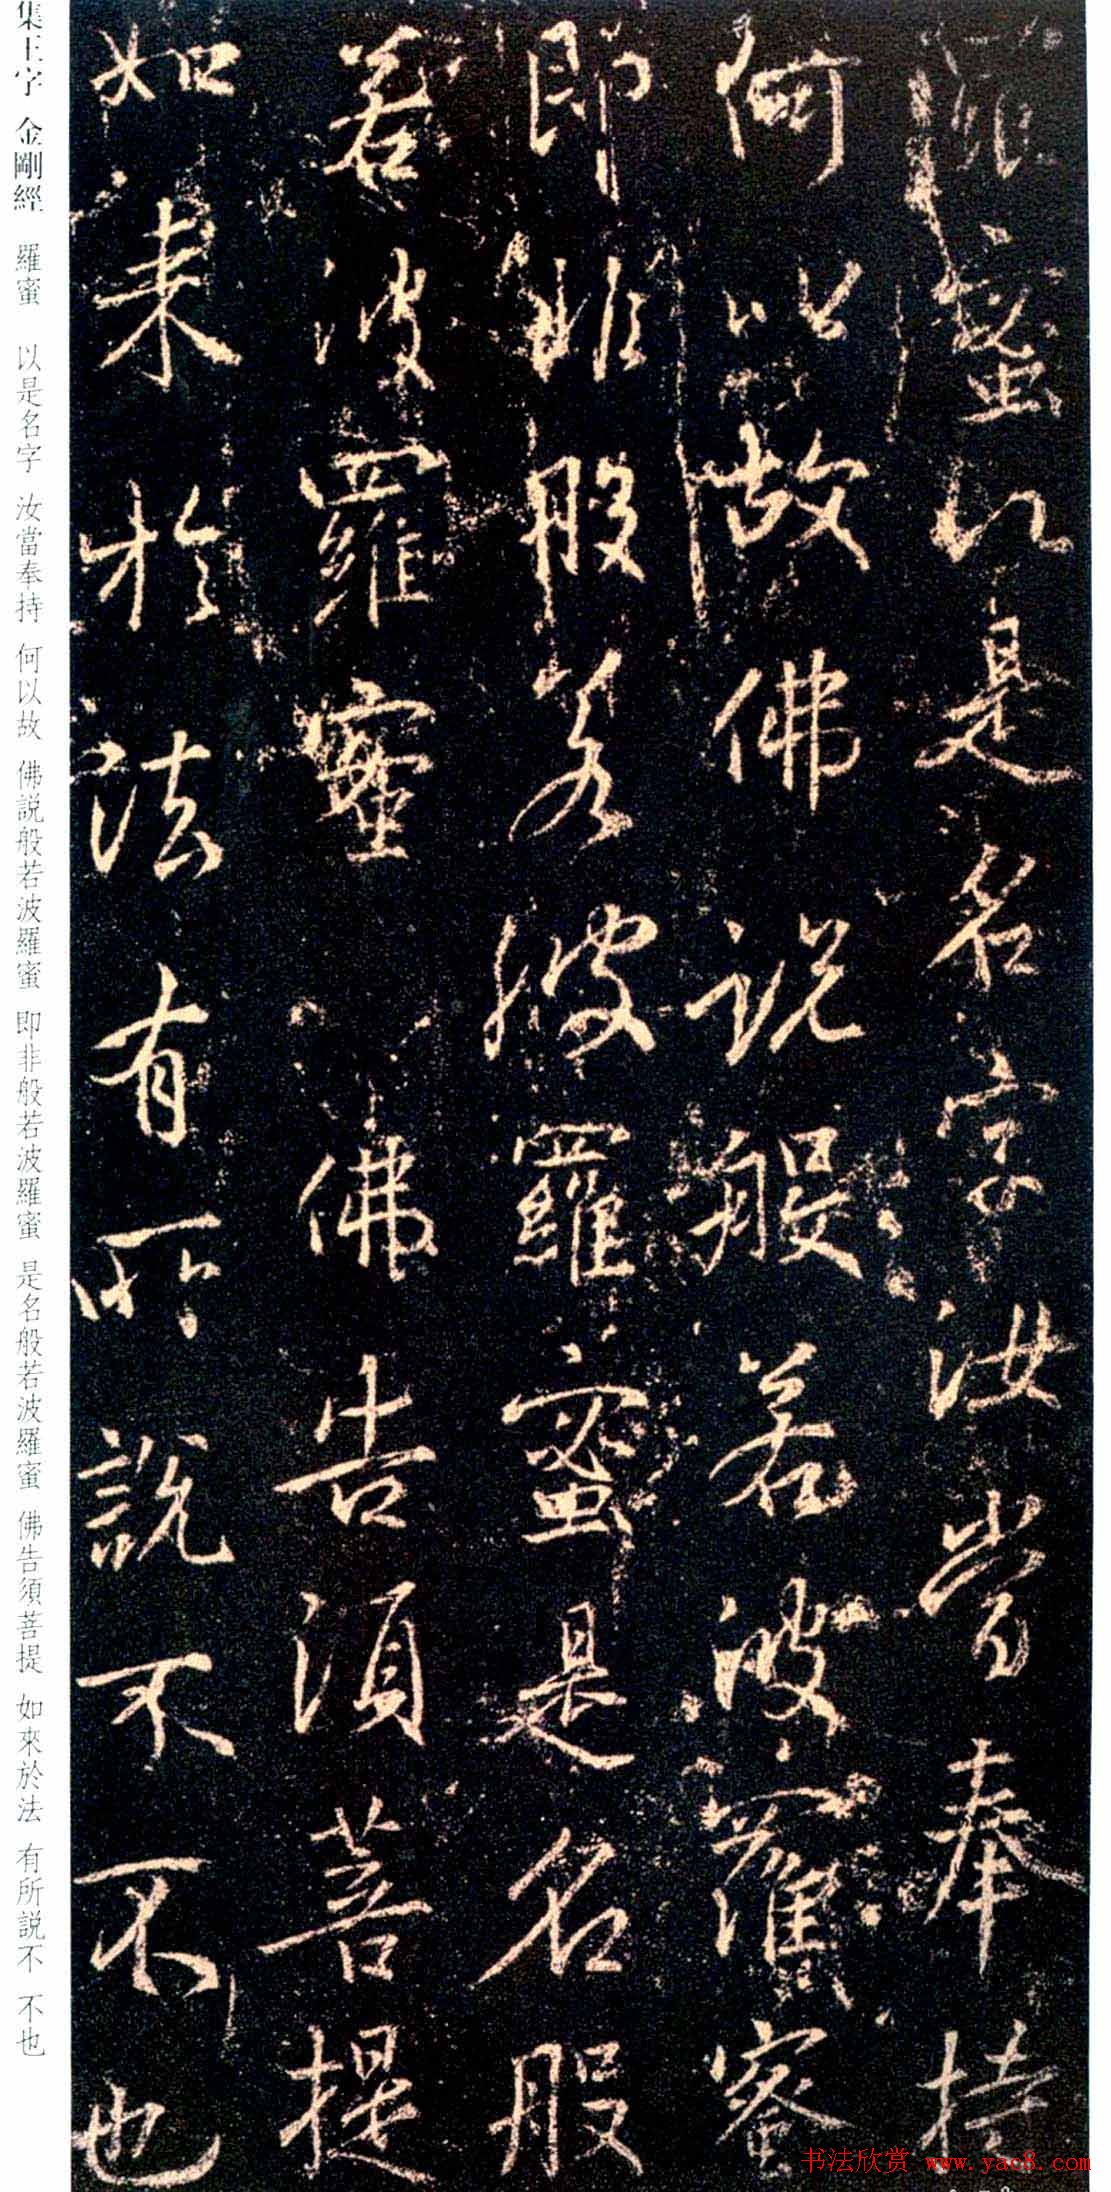 羅蜜以是名字汝當奉持
何以故佛說般若波羅蜜
即非般若波羅蜜是名般
若波羅蜜佛告須菩提
如来於法有所說不不也
集王字 金剛經 羅蜜 以是名字 汝當奉持 何以故 佛説般若波羅蜜 即非般若波羅蜜 是名般若波羅蜜 佛告須菩提 如來於法 有所説不 不也
书法欣赏 www.yac8.com